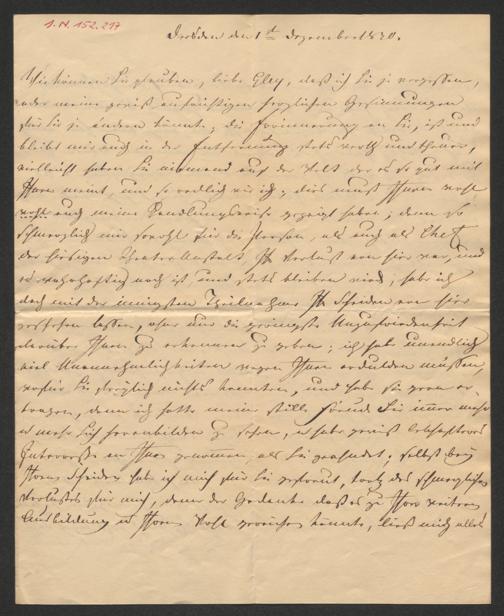 I.N. 152.217
Dresden den 1st Dezember 1830.
Wie können Sie glauben, liebe Gley, daß ich Sie je vergessen,
oder meine gewiß aufrichtigen herzlichen Gesinnungen
für Sie je ändern könnte; die Erinnerung an Sie, ist und
bleibt mir auch in der Entfernung stets werth und theuer,
vielleicht haben Sie niemand auf der Welt der es so gut mit
Ihnen meint, und so redlich wie ich; dies muß Ihnen wohl
auch meine Handlungsweise gezeigt haben; denn so
schmerzlich mir sowohl für die Person, als auch als Chef
der hiesigen Theater Anstalt, Ihr Verlust von hier war, und
es wahrhaftig noch ist, und stets bleiben wird, habe ich
doch mit der innigsten Theilnahme Ihr Scheiden von hier
geschehen lassen, ohne nur die geringste Unzufriedenheit
darüber Ihnen zu erkennen zu geben; ich habe unendlich
viel Unannehmlichkeiten wegen Ihnen erdulden müssen,
wofür Sie freylich nichts konnten, und habe sie gern er-
tragen, denn ich hatte meine stille Freude Sie immer mehr
u mehr sich heranbilden zu sehen, u habe gewiß lebhafteres
Interesse an Ihnen genommen, als Sie geahndet; selbst bey
Ihrem Scheiden habe ich mich für Sie gefreut, trotz des schmerzlichen
Verlustes für mich, denn der Gedanke daß es zu Ihrer weitern
Ausbildung u Ihrem Wohl gereichen könnte, ließ mich alles